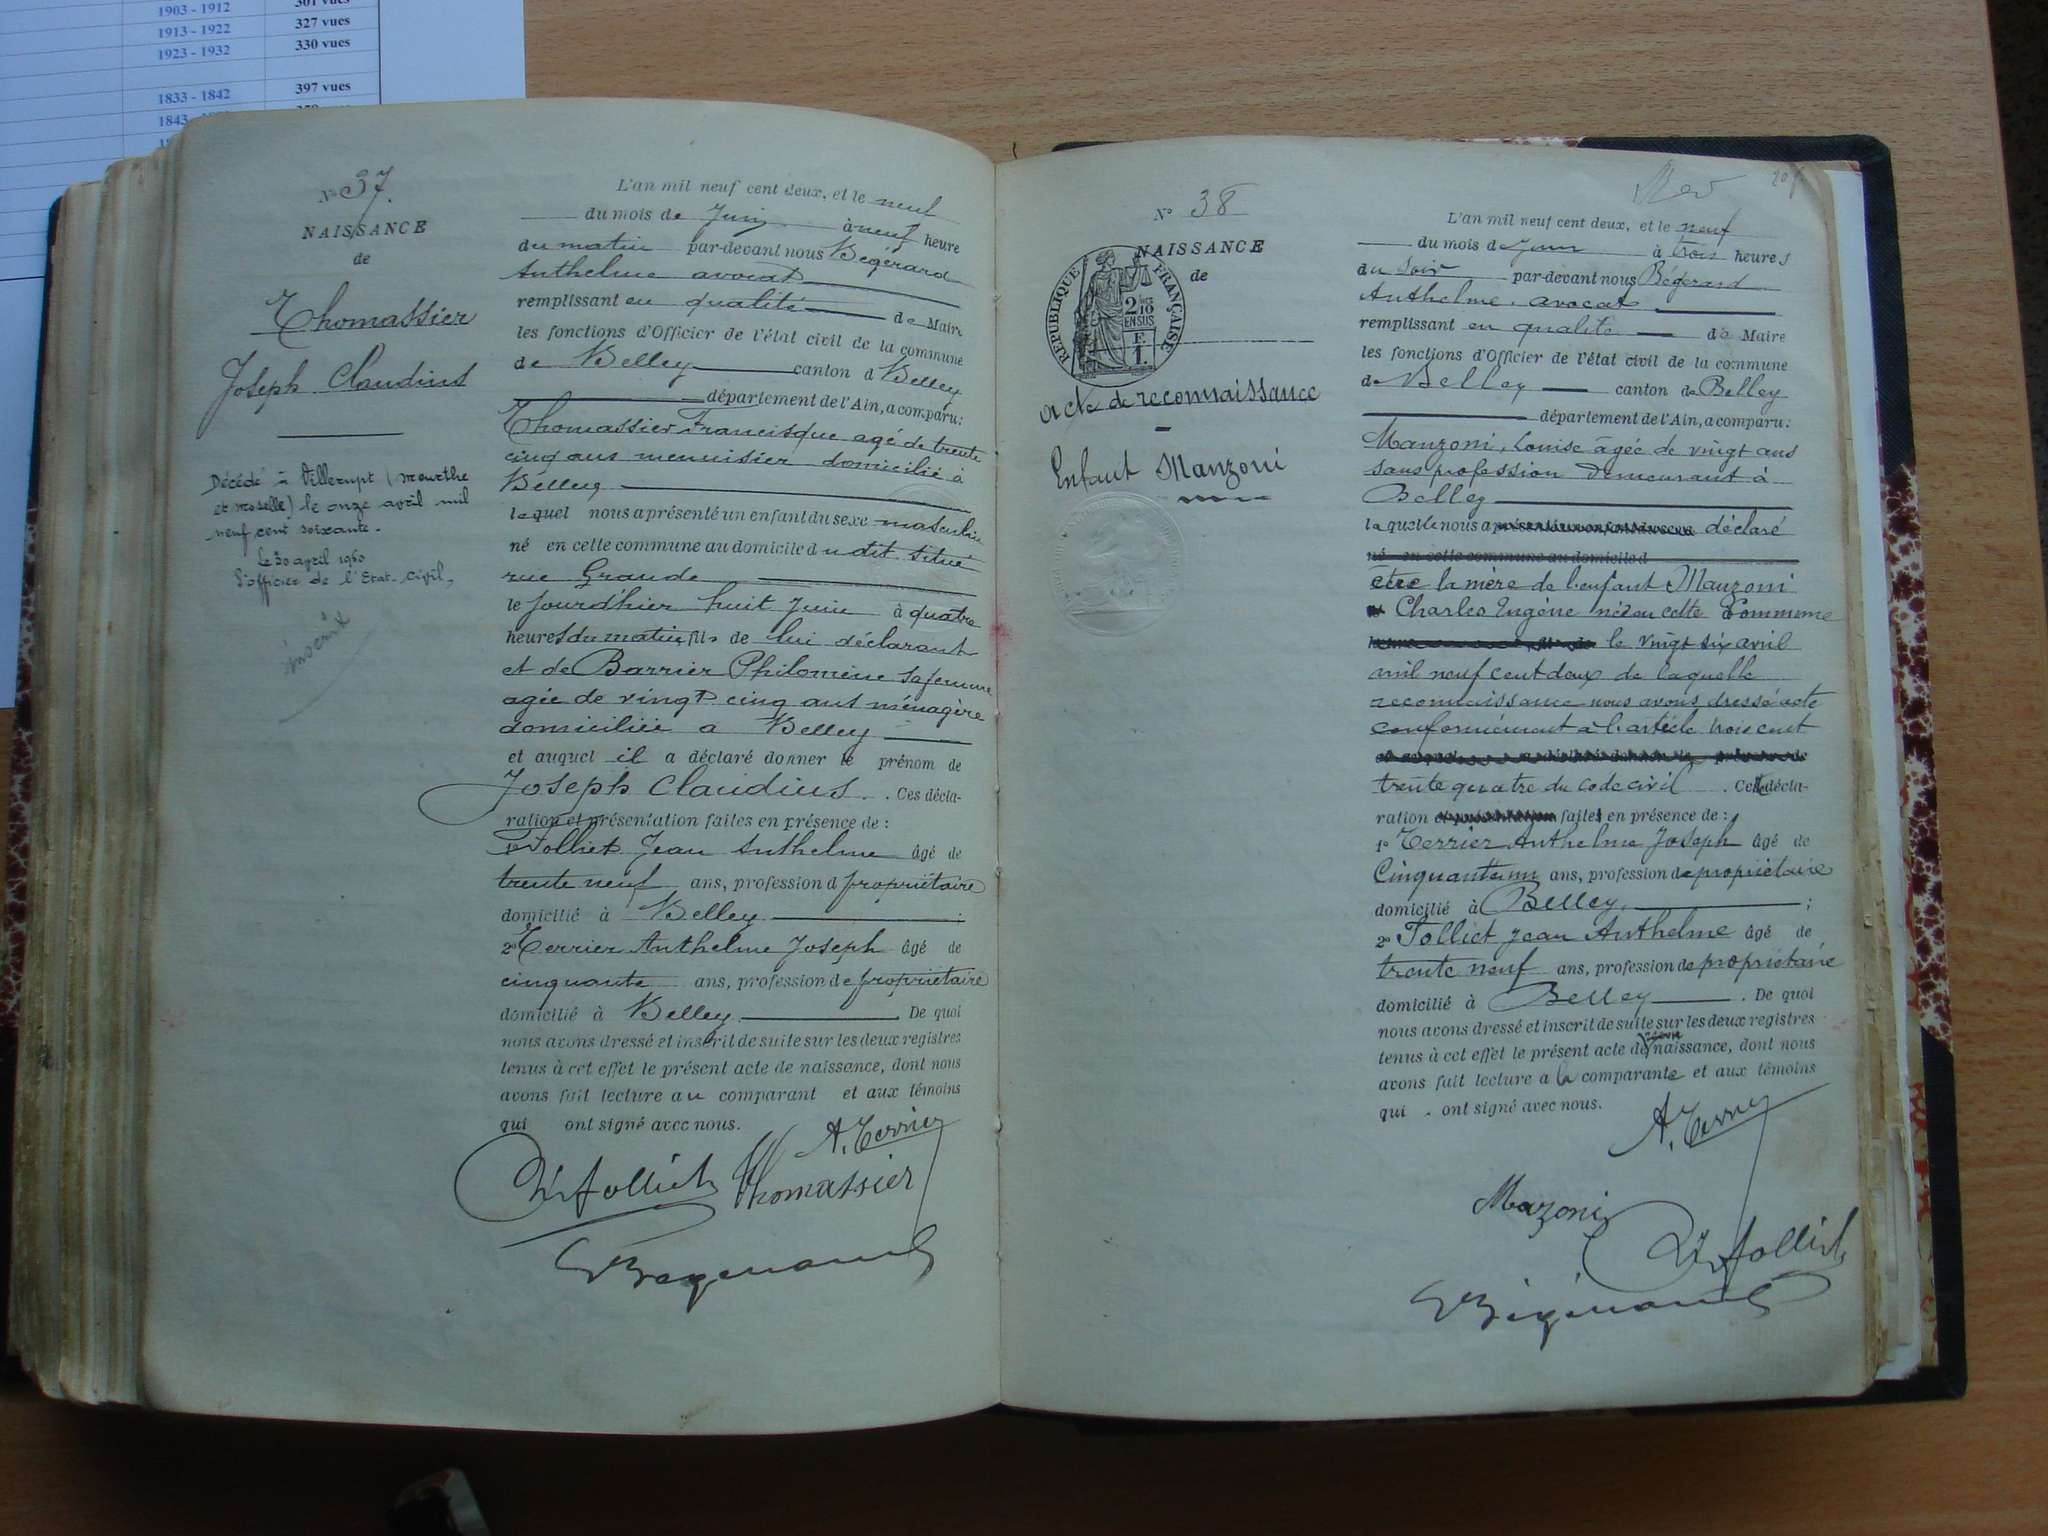 1903 - 1912 301 vues
1913 - 1922 327 vues
1923 - 1932 330 vues
1833 - 1842 397 vues
1843
N° 37.
NAISSANCE
de
Thomassier
Joseph Claudius
Décédé à Villerupt (meurthe
et moselle) le onze avril mil
neuf cent soixante.
Le 30 april 1960
l'officier de l'Etat-civil,
inscrit
L'an mil neuf cent deux, et le neuf
du mois de Juin à neuf heure
du matin par-devant nous Bégérard
Anthelme avocat
remplissant en qualité de Maire
les fonctions d'Officier de l'état civil de la commune
de Belley canton d Belley
département de l'Ain, a comparu:
Thomassier Francisque agé de trente
cinq ans menuisier domicilié à
Belley
lequel nous a présenté un enfant du sexe masculin
né en cette commune au domicile du dit situé
rue Grande
le jourd'hier huit Juin à quatre
heures du matin, fils de lui déclarant
et de Barrier Philomène sa femme
agée de vingt cinq ans ménagère
domiciliée a Belley
et auquel il a déclaré donner le prénom de
Joseph Claudius . Ces décla-
ration et présentation faites en présence de :
1° Folliet Jean Anthelme âgé de
trente neuf ans, profession d propriétaire
domicilié à Belley ;
2° Terrier Anthelme Joseph âgé de
cinquante ans, profession de propriétaire
domicilié à Belley De quoi
nous avons dressé et inscrit de suite sur les deux registres
tenus à cet effet le présent acte de naissance, dont nous
avons fait lecture au comparant et aux témoins
qui ont signé avec nous.
A. Terrier
Folliet Thomassier
N° 38
NAISSANCE
de
RÉPUBLIQUE FRANÇAISE
2/10 EN SUS
F.
1.
acte de reconnaissance
Enfant Manzoni
L'an mil neuf cent deux, et le neuf
du mois de Juin à trois heures
du soir par-devant nous Bégérard
Anthelme, avocat
remplissant en qualité de Maire
les fonctions d'Officier de l'état civil de la commune
de Belley canton de Belley
département de l'Ain, a comparu:
Manzoni, Louise âgée de vingt ans
sans profession demeurant à
Belley
laquelle nous a déclaré
né en cette commune au domicile d
être la mère de l'enfant Manzoni
Charles Eugène né en cette Commune
le vingt six avril
mil neuf cent deux de laquelle
reconnaissance nous avons dressé acte
conformément à l'article trois cent
trente quatre du code civil . Cette décla-
ration faites en présence de :
1° Terrier Anthelme Joseph âgé de
Cinquante un ans, profession de propriétaire
domicilié à Belley ;
2° Folliet Jean Anthelme âgé de
trente neuf ans, profession de propriétaire
domicilié à Belley . De quoi
nous avons dressé et inscrit de suite sur les deux registres
tenus à cet effet le présent acte de naissance, dont nous
avons fait lecture a la comparante et aux témoins
qui ont signé avec nous.
A. Terrier
Mazoni
Folliet